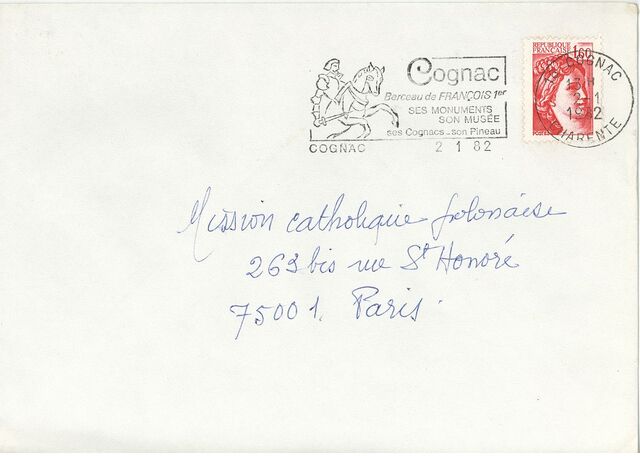 Cognac
Berceau de FRANÇOIS 1er
SES MONUMENTS
SON MUSÉE
ses Cognacs - son Pineau
COGNAC 2 1 82
REPUBLIQUE
FRANÇAISE
1,60
COGNAC
2-1
1982
CHARENTE
Mission catholique polonaise
263 bis rue St Honoré
75001 Paris.